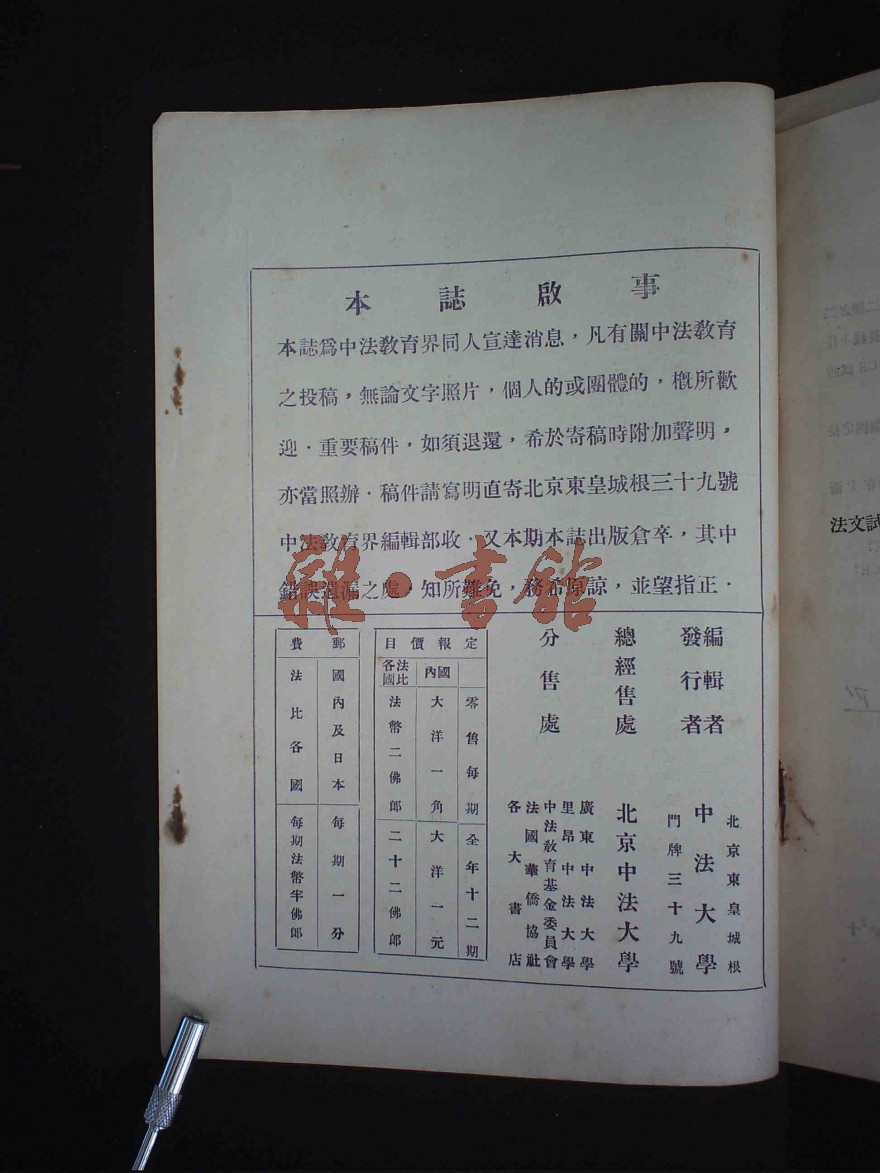 本誌啟事
本誌爲中法敎育界同人宣達消息，凡有關中法敎育
之投稿，無論文字照片，個人的或團體的，槪所歡
迎．重要稿件，如須退還，希於寄稿時附加聲明，
亦當照辦．稿件請寫明直寄北京東皇城根三十九號
中法敎育界編輯部收．又本期本誌出版倉卒，其中
錯誤遺漏之處，知所難免，務希原諒，並望指正．
雜·書館
編輯者
發行者
北京東皇城根
中法大學
門牌三十九號
總經售處
北京中法大學
分售處
廣東中法大學
里昂中法大學
中法敎育基金委員會
法國華僑協社
各大書店
定報價目
零售每期
全年十二期
國內
大洋一角
大洋一元
法比各國
法幣二佛郎
二十二佛郎
郵費
國內及日本
每期一分
法比各國
每期法幣半佛郎
法文試